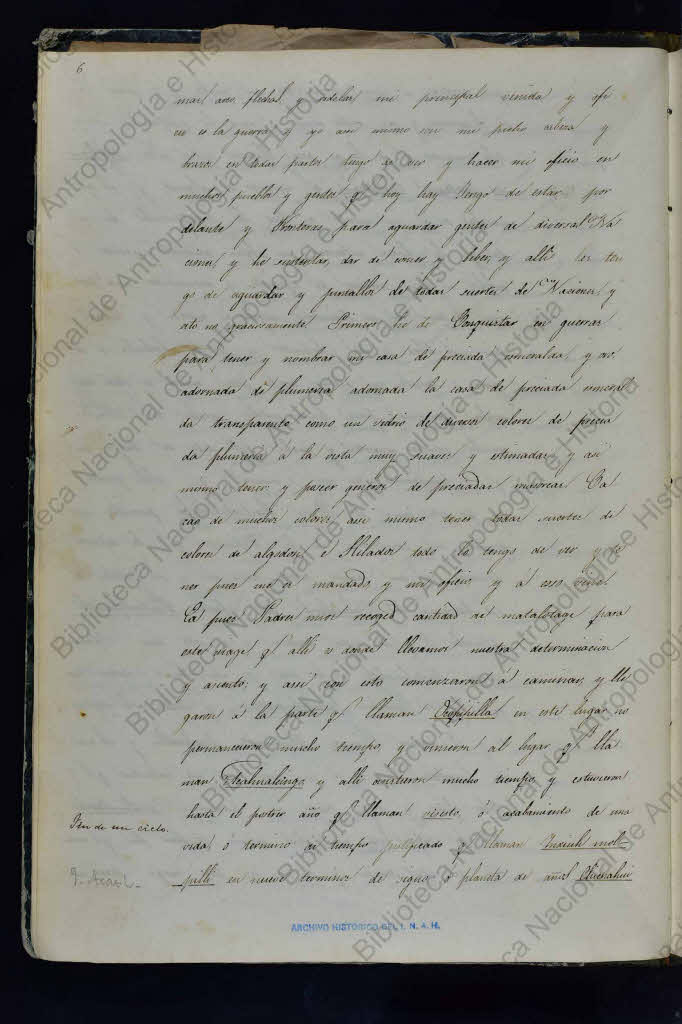 6
mas, arco, flechas, y rodelas mi principal venida y ofi
cio es la guerra, y yo asi mismo con mi pecho cabeza y
brazos en todas partes tengo de ver y hacer mi oficio en
muchos pueblos y gentes q.e hoy hay tengo de estar por
delante y fronteras para aguardar gentes de diversas Na
ciones, y he sustentar, dar de comer y beber, y alli les ten
go de aguardar y juntallos de todas suertes de Naciones, y
esto no graciosamente. Primero he de Conquistar en guerras
para tener y nombrar mi casa de preciada esmeralda, y oro,
adornada de plumeria adornada la casa de preciada esmeral
da transparente como un vidrio de diversos colores de precia
da plumeria á la vista muy suaves y estimadas, y asi
mismo tener y poseer géneros de preciadas mazorcas Ca
cao de muchos colores, asi mismo tener todas suertes de
colores de algodon, é Hilados todo lo tengo de ver y te
ner pues me es mandado, y mi oficio, y á eso vine.
Ea pues Padres mios recoged cantidad de matalotage para
este viage q.e alli es donde llevamos nuestra determinacion
y asiento; y assi con esto comenzaron á caminar, y lle
garon á la parte q.e llaman Ocopipilla en este lugar no
permanecieron mucho tiempo, y vinieron al lugar q.e lla
man
y alli asistieron mucho tiempo, y estuvieron
hasta el postrer año q.e llaman visesto, ó acabamiento de una
Fin de un ciclo.
vida ó termino de tiempo justificado q.e llaman Inxiuh mol-
pilli en nueve terminos de signo, ó planeta de años
ARCHIVO HISTORICO DEL I. N. A. H.
Biblioteca Nacional de Antropología e Historia